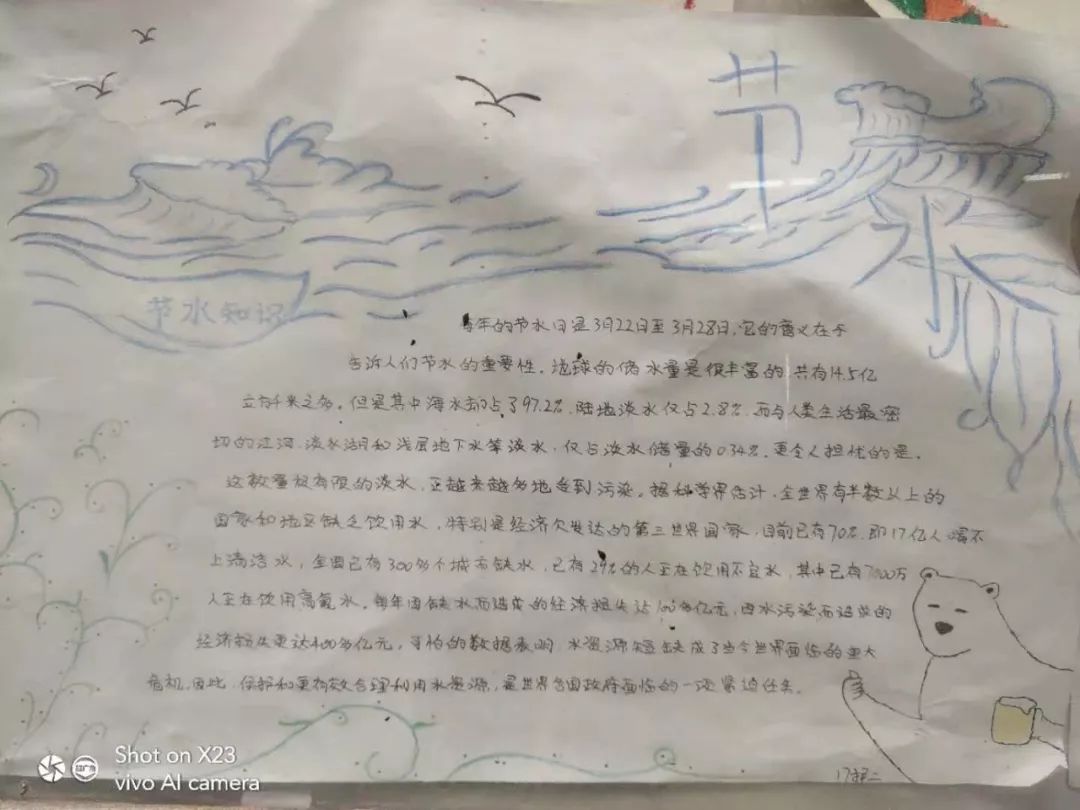 节水
节水知识
每年的节水日是3月22日至3月28日,它的意义在于
告诉人们节水的重要性。地球的储水量是很丰富的 共有14.5亿
立方千米之多。但是其中海水却占了97.2%,陆地淡水仅占2.8%,而与人类生活最密
切的江河、淡水湖和浅层地下水等淡水,仅占淡水储量的0.34%,更令人担忧的是,
这数量极有限的淡水,正越来越多地受到污染。据科学界估计,全世界有半数以上的
国家和地区缺乏饮用水,特别是经济欠发达的第三世界国家,目前已有70%,即17亿人喝不
上清洁水,全国已有300多个城市缺水,已有29%的人正在饮用不宜水,其中已有7000万
人正在饮用高氟水。每年因缺水而造成的经济损失达100多亿元,因水污染而造成的
经济损失更达400多亿元,可怕的数据表明,水资源短缺成了当今世界面临的重大
危机,因此,保护和更有效合理利用水资源,是世界各国政府面临的一项紧迫任务。
Shot on X23
vivo AI camera